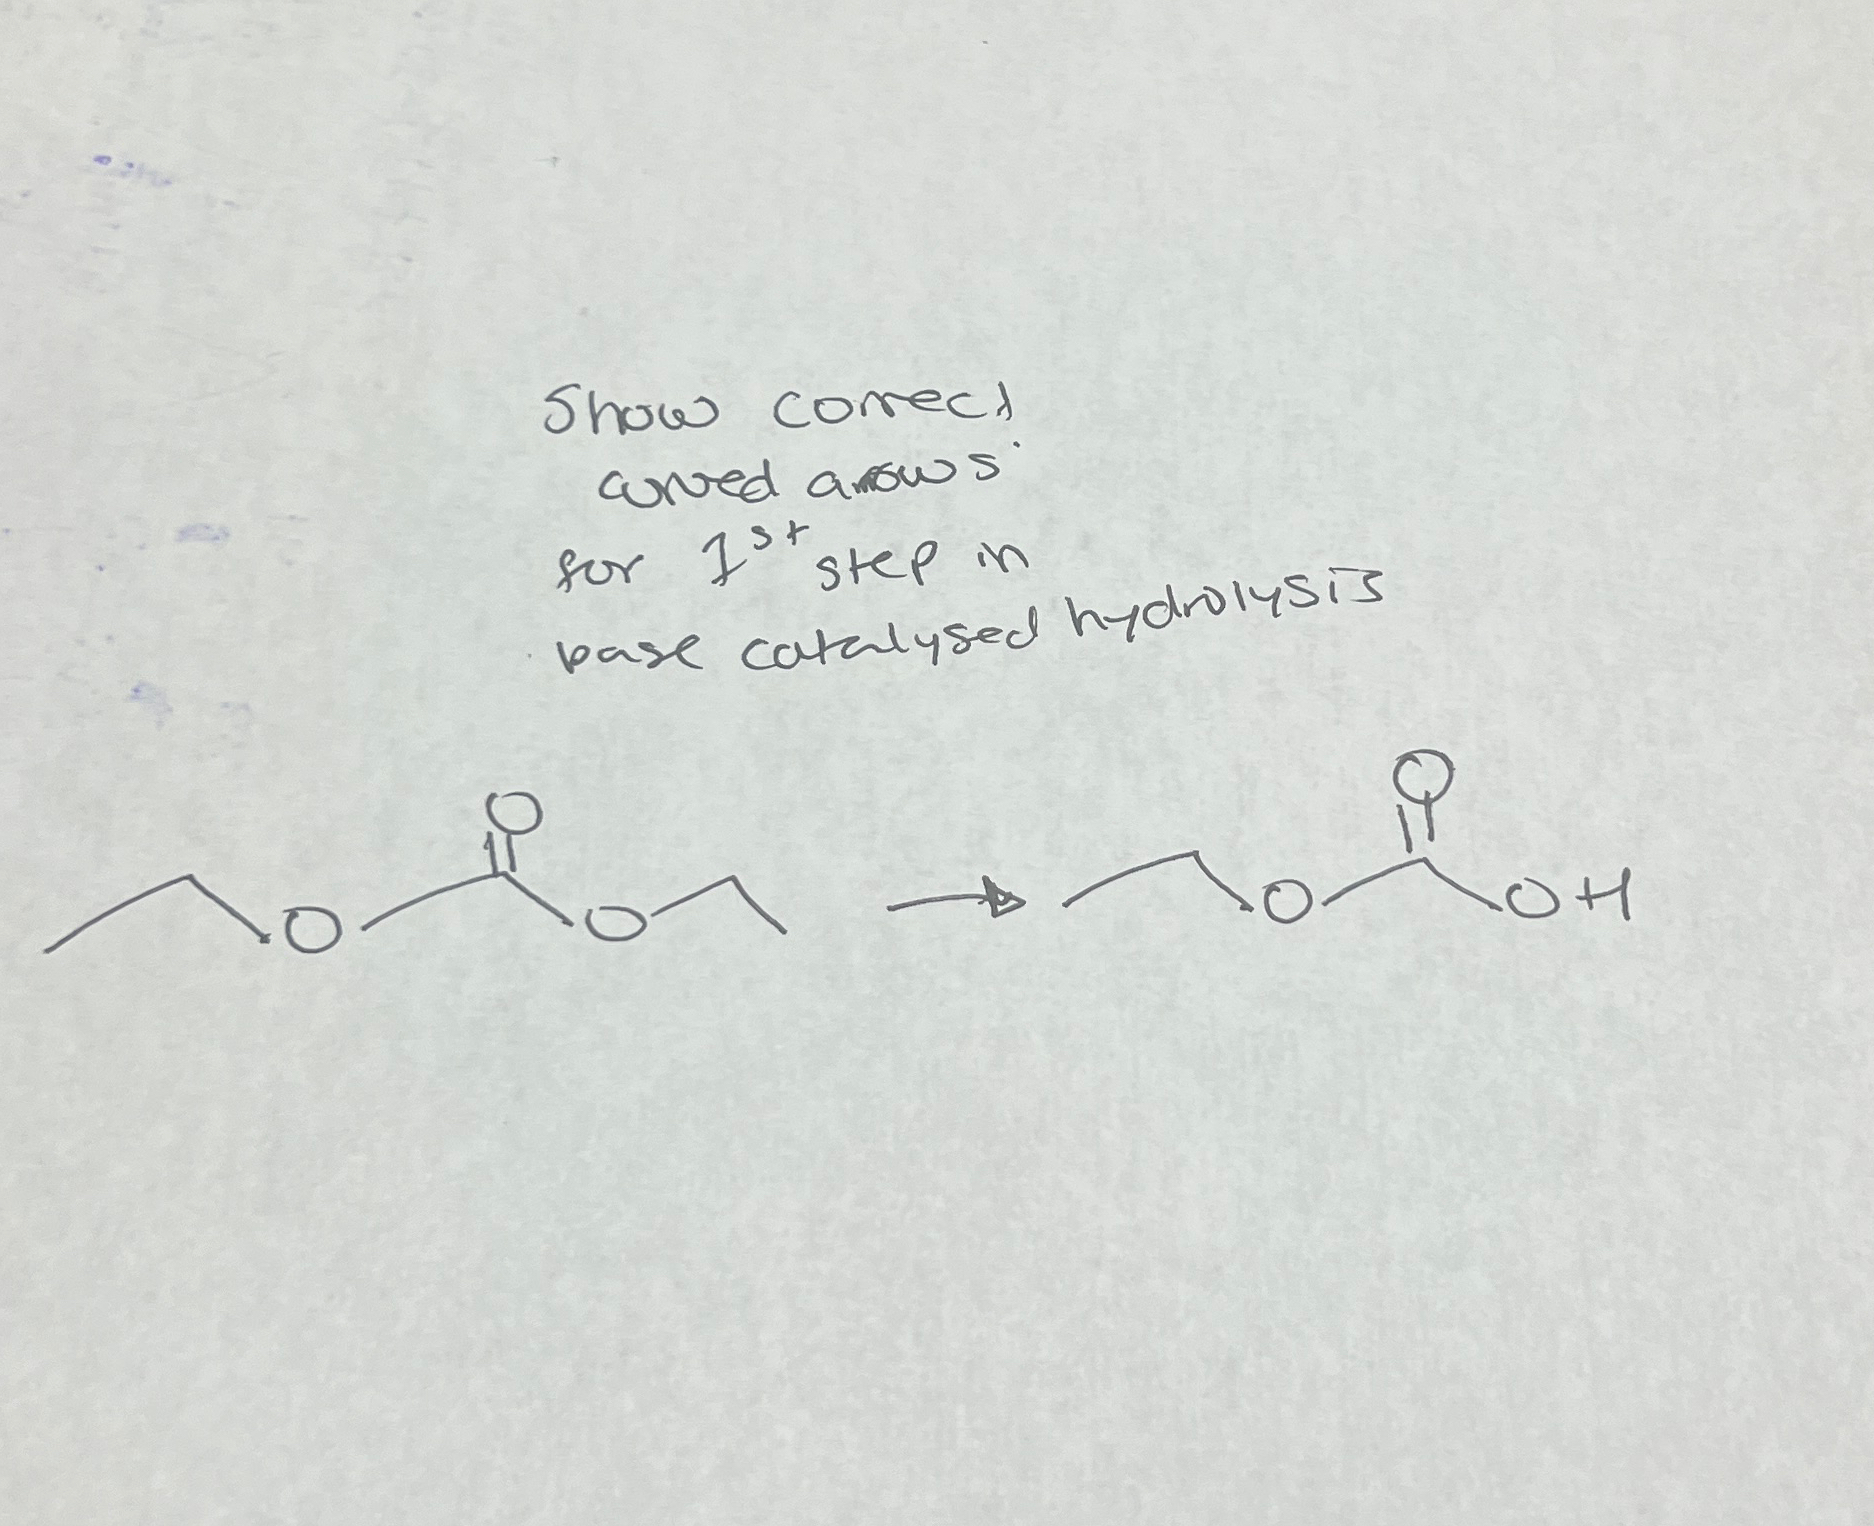 Show correct
curved arrows
for 1st step in
base catalysed hydrolysis
O
O
O O
O OH